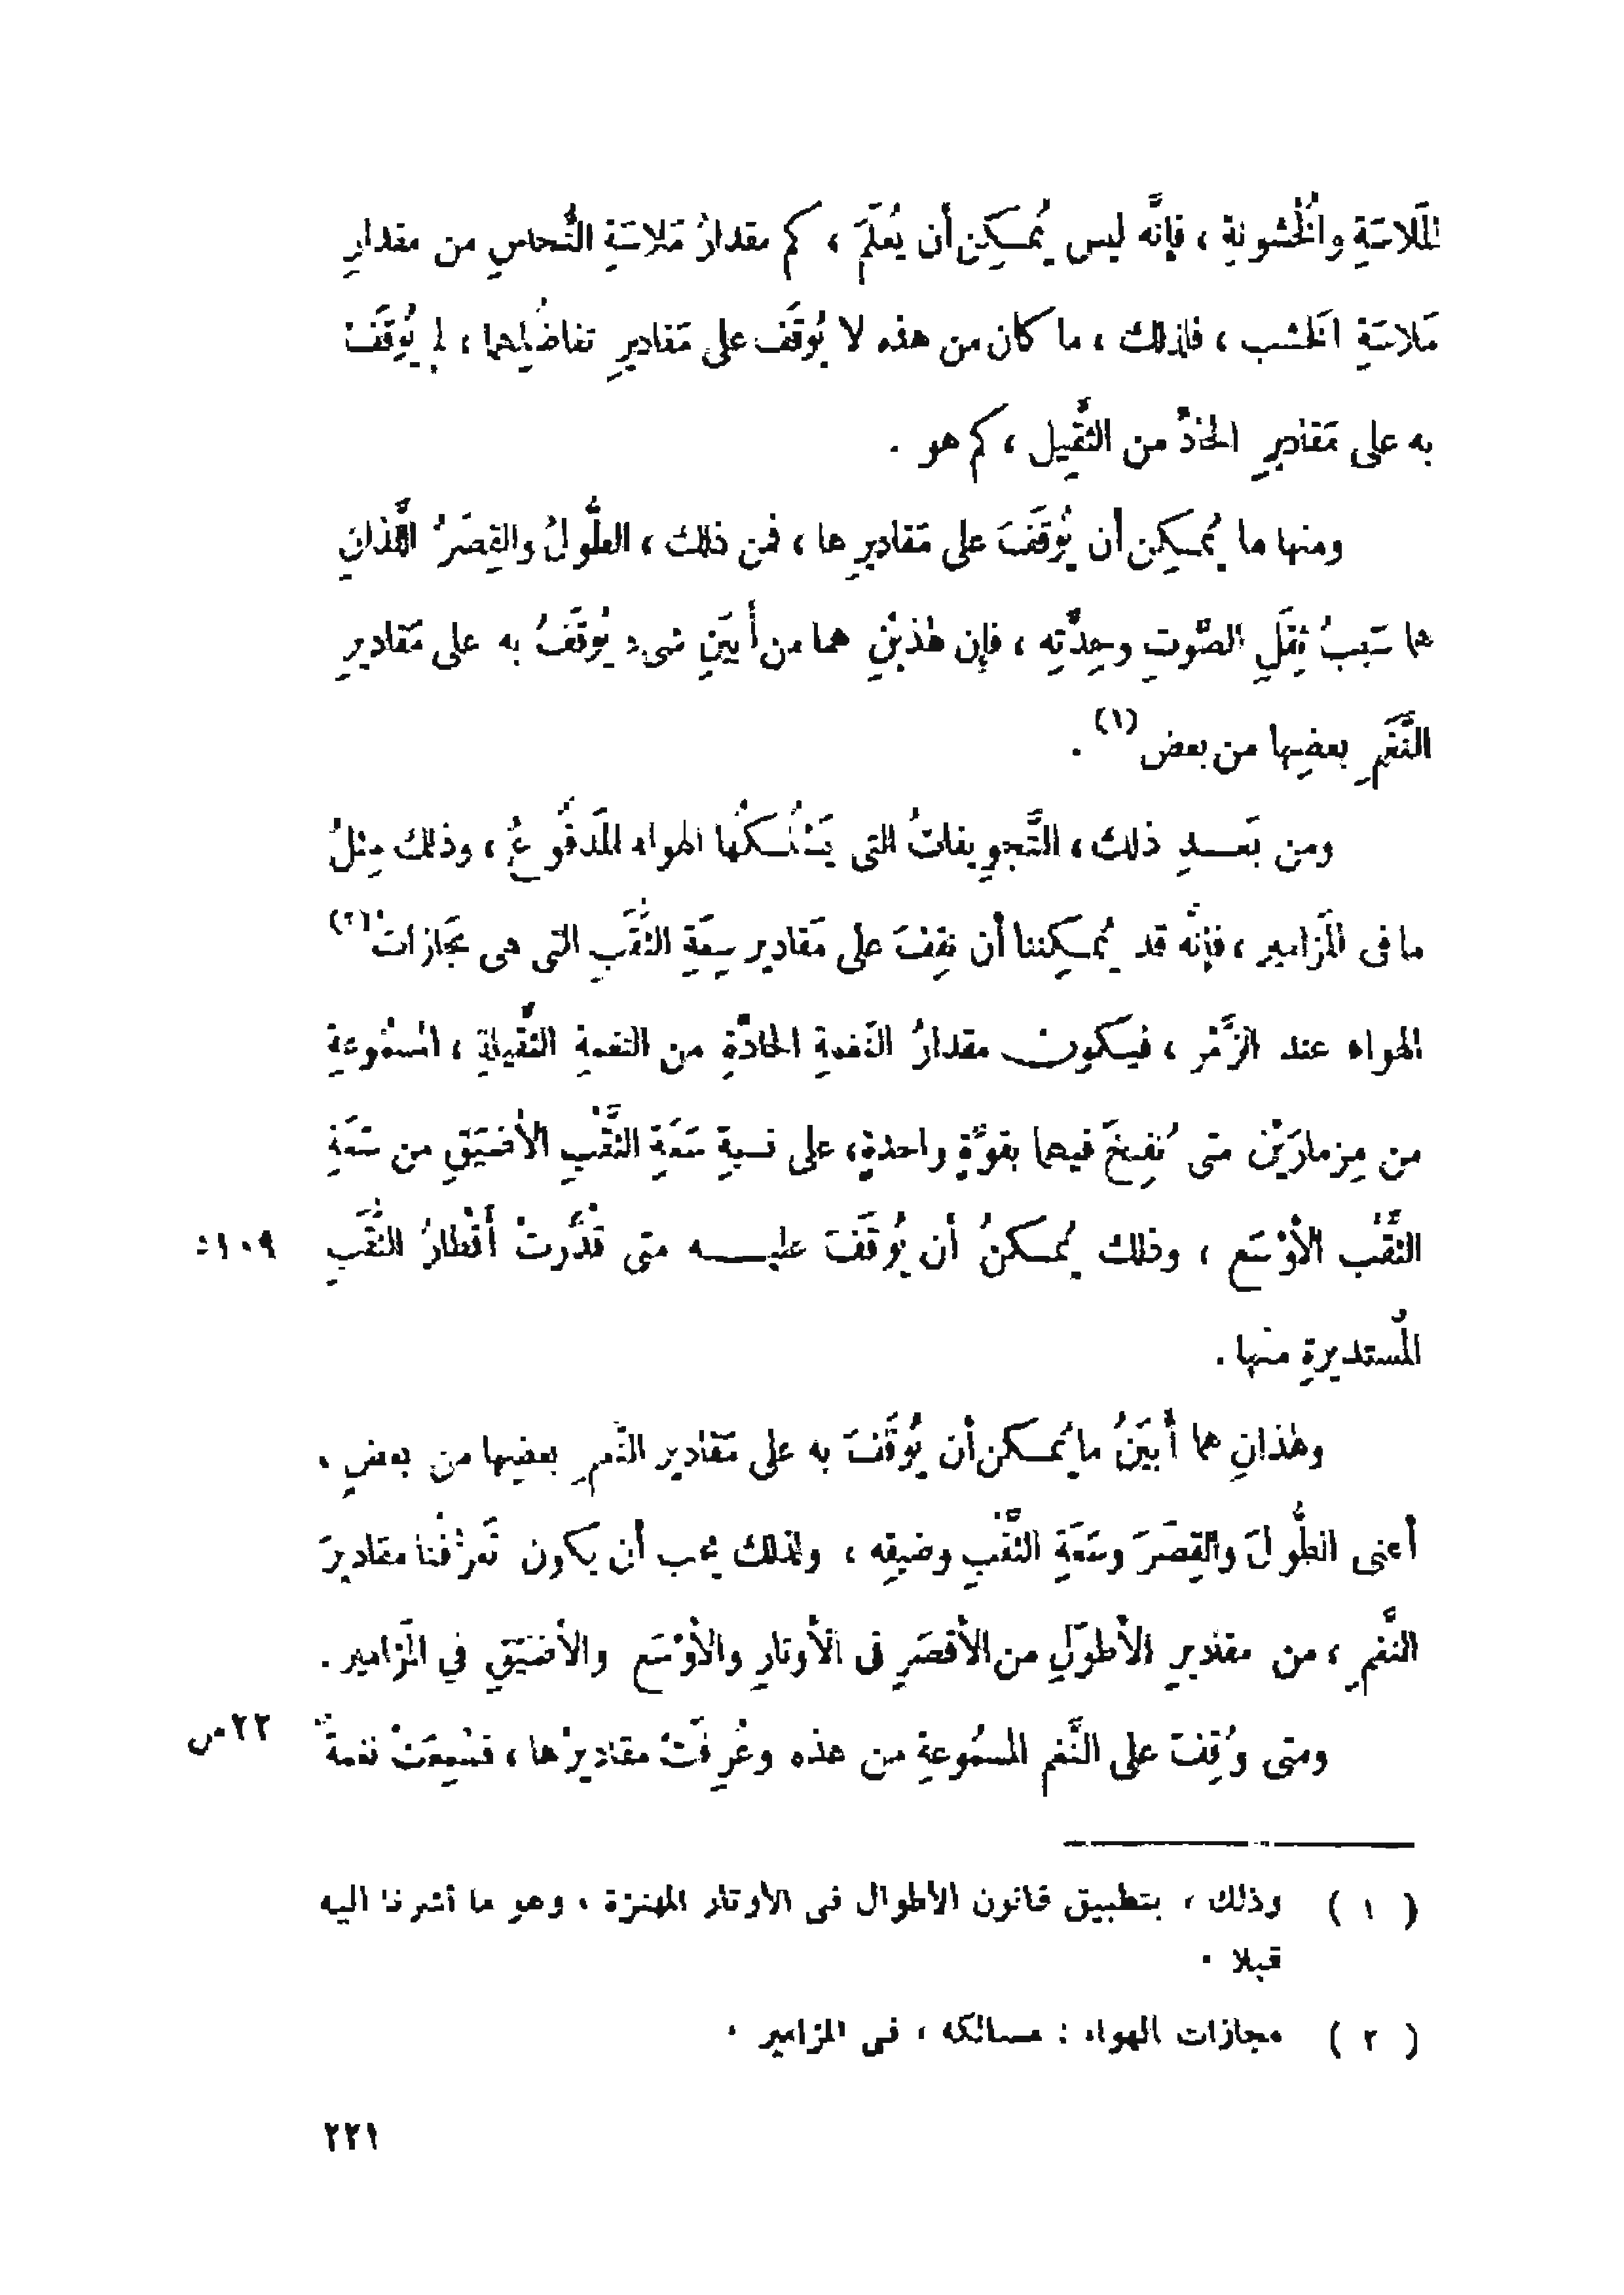 المَلاسَةِ والخُشونةِ ، فإنَّه ليس يُمـكِن أن يُعلَمَ ، كم مقدارُ مَلاسَةِ النُّحاسِ من مقدارِ
مَلاسَةِ الخَشب ، فلذلك ، ما كان من هذه لا يُوقَف على مَقاديرِ تفاضُلِها ، لم يُوقَفْ
به على مَقاديرِ الحادِّ من الثَّقِيل ، كم هو .
ومنها ما يُمـكِن أن يُوقَفَ على مَقاديرِها ، فمن ذلك ، الطُّولُ والقِصَرُ اللَّذانِ
هما سَببُ ثِقَلِ الصَّوتِ وحِدَّتِه ، فإن هٰذيْنِ هما من أَبيَنِ شىءٍ يُوقَفُ به على مَقاديرِ
النَّغَمِ بعضِها من بعض (١) .
ومن بَعـــدِ ذلك ، التَّجوِيفاتُ التى يَسْلُـكُها الهواء المَدفُوعُ ، وذلك مِثلُ
ما فى المَزامير ، فإنَّه قد يُمـكِننا أن نقِفَ على مَقادير سِعَةِ الثُّقَبِ التى هى مَجازاتُ (٢)
الهواء عند الزَّمْر ، فيَكون مقدارُ النَّغمةِ الحادَّةِ من النغمة الثَّقيلةِ ، المسمُوعةِ
من مِزمارَيْن متى نُفِخَ فيهما بقوَّةٍ واحدةٍ ، على نسبةِ سَعَةِ الثَّقْبِ الأضيَقِ من سَعَةِ
الثَّقْب الأوْسَع ، وذلك يُمـكنُ أن يُوقَفَ عليـــه متى قُدِّرتْ أقْطارُ الثُّقَبِ ١٠٩ د
المُستديرةِ منها .
وهٰذانِ هما أبيَنُ ما يُمـكن أن يُوقَفَ به على مَقادير النَّغمِ بعضِها من بعضٍ ،
أعنى الطُّولَ والقِصَرَ وسَعَةِ الثَّقْبِ وضيقِه ، ولذلك يجب أن يكون تَعرُّفُنا مقاديرَ
النَّغمِ ، من مقاديرِ الأطوَلِ من الأقصَرِ فى الأوتارِ والأوْسَعِ والأضيَقِ في المَزامير .
ومتى وُقِفَ على النَّغمِ المسمُوعةِ من هذه وعُرِفَتْ مقاديرُها ، فسُمِعَتْ نغمةٌ ٢٢ س
( ١ ) وذلك ، بتطبيق قانون الأطوال فى الأوتار المهتزة ، وهو ما أشرنا اليه
قبلا .
( ٢ ) مجازات الهواء : مسالكه ، فى المزامير .
٢٢١